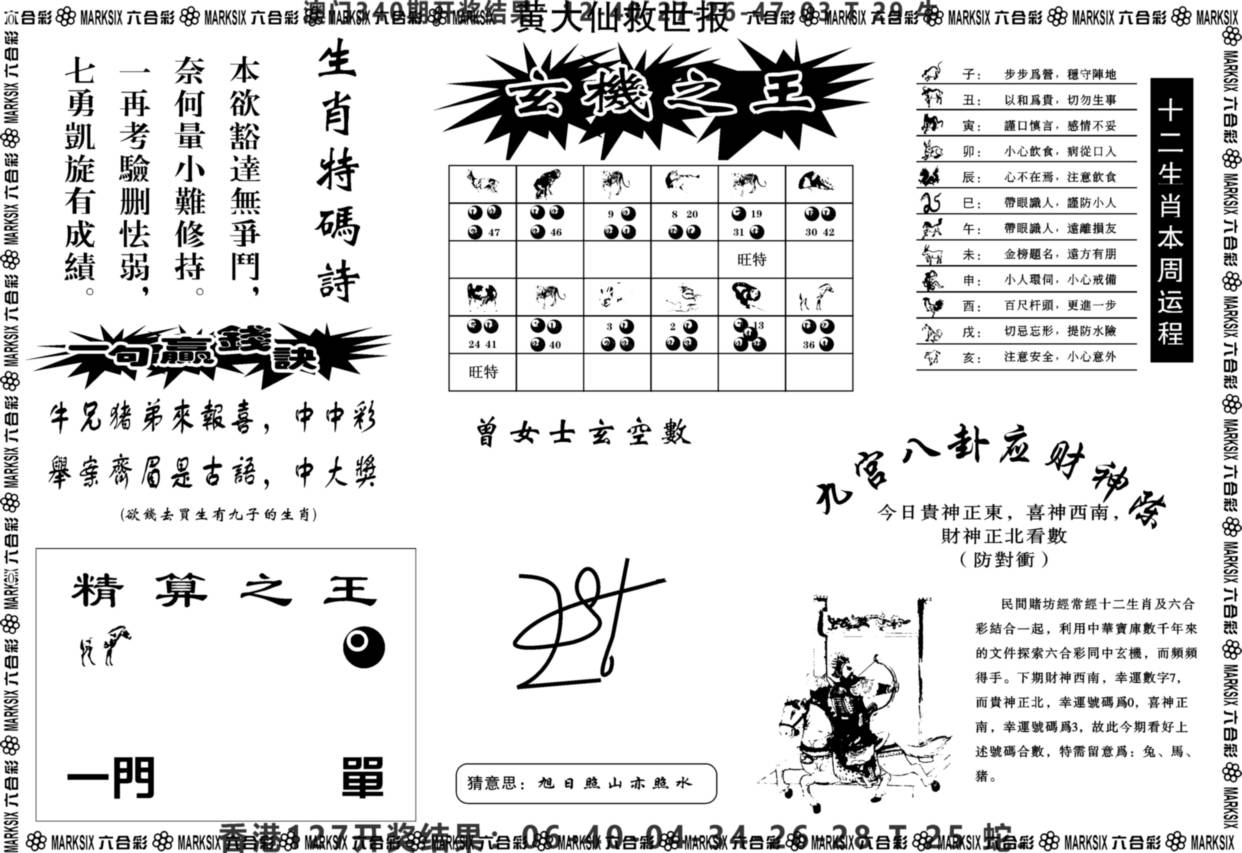 黄大仙救世报
澳门340期开奖结果
MARKSIX 六合彩
生肖特碼詩
本欲豁達無爭鬥，
奈何量小難修持。
一再考驗删怯弱，
七勇凱旋有成績。
一句贏錢訣
牛兄猪弟來報喜，中中彩
舉案齊眉是古語，中大獎
(欲錢去買生有九子的生肖)
精算之王
一門
單
玄機之王
47
46
9
8 20
19
31
30 42
旺特
24 41
40
3
2
13
36
旺特
曾女士玄空數
猜意思：旭日照山亦照水
十二生肖本周运程
子： 步步爲營，穩守陣地
丑： 以和爲貴，切勿生事
寅： 謹口慎言，感情不妥
卯： 小心飲食，病從口入
辰： 心不在焉，注意飲食
巳： 帶眼識人，謹防小人
午： 帶眼識人，遠離損友
未： 金榜題名，遠方有朋
申： 小人環伺，小心戒備
酉： 百尺杆頭，更進一步
戌： 切忌忘形，提防水險
亥： 注意安全，小心意外
九宮八卦应财神
今日貴神正東，喜神西南，
財神正北看數
（防對衝）
民間賭坊經常經十二生肖及六合
彩結合一起，利用中華寶庫數千年來
的文件探索六合彩同中玄機，而頻頻
得手。下期財神西南，幸運數字7，
而貴神正北，幸運號碼爲0，喜神正
南，幸運號碼爲3，故此今期看好上
述號碼合數，特需留意爲：兔、馬、
猪。
香港127开奖结果：06-40-04-34-26-28-T-25 蛇